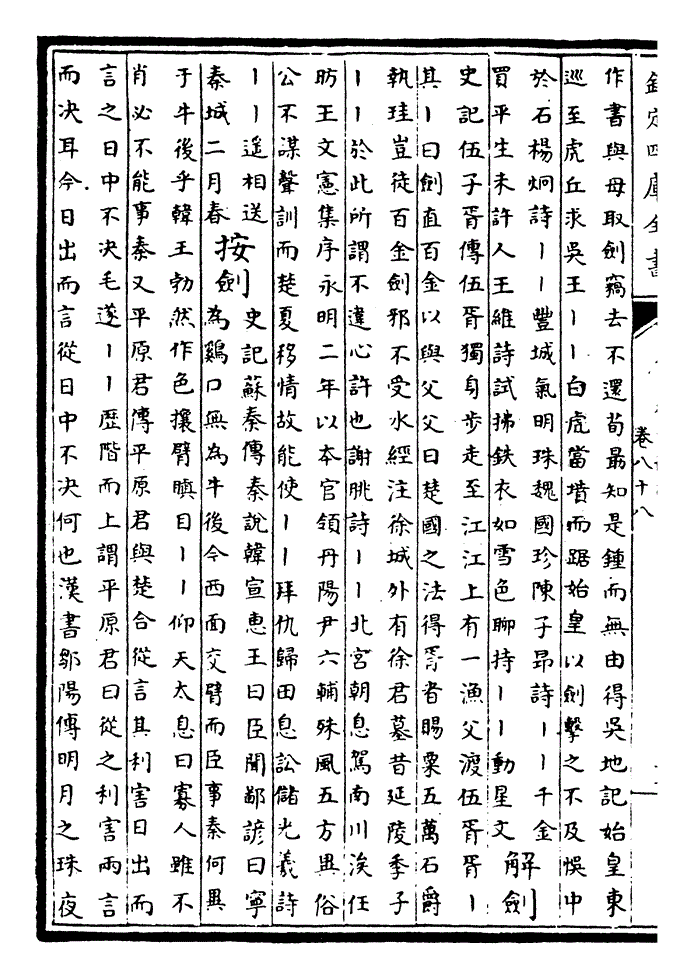 欽定四庫全書
卷八十八
作書與母取劍竊去不還荀勗知是鍾而無由得吳地記始皇東
巡至虎丘求吳王丨丨白虎當墳而踞始皇以劍擊之不及悞中
於石楊炯詩丨丨豐城氣明珠魏國珍陳子昂詩丨丨千金
買平生未許人王維詩試拂鉄衣如雪色聊持丨丨動星文
解劍
史記伍子胥傳伍胥獨身步走至江江上有一漁父渡伍胥胥丨
其丨曰劍直百金以與父父曰楚國之法得胥者賜粟五萬石爵
執珪豈徒百金劍邪不受水經注徐城外有徐君墓昔延陵季子
丨丨於此所謂不違心許也謝朓詩丨丨北宮朝息駕南川涘任
昉王文憲集序永明二年以本官領丹陽尹六輔殊風五方異俗
公不謀聲訓而楚夏移情故能使丨丨拜仇歸田息訟儲光羲詩
丨丨遥相送
秦城二月春
按劍
史記蘇秦傳秦說韓宣惠王曰臣聞鄙諺曰寧
為鷄口無為牛後今西面交臂而臣事秦何異
于牛後乎韓王勃然作色攘臂瞋目丨丨仰天太息曰寡人雖不
肖必不能事秦又平原君傳平原君與楚合從言其利害日出而
言之日中不决毛遂丨丨歷階而上謂平原君曰從之利害兩言
而决耳今日出而言從日中不决何也漢書鄒陽傳明月之珠夜